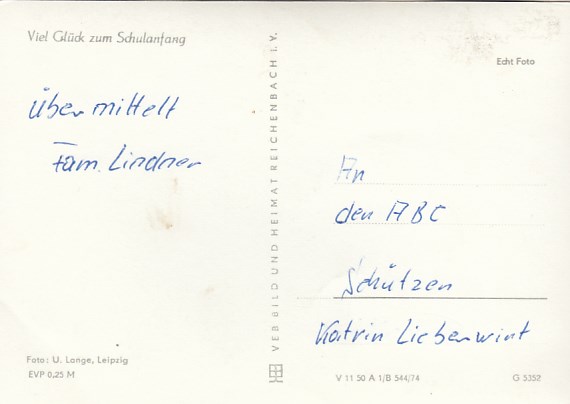 Viel Glück zum Schulanfang
Übermittelt
Fam. Lindner
Foto: U. Lange, Leipzig
EVP 0,25 M
VEB BILD UND HEIMAT REICHENBACH I. V.
Echt Foto
An
den ABC
Schützen
Katrin Lieberwirt
V 11 50 A 1/B 544/74
G 5352